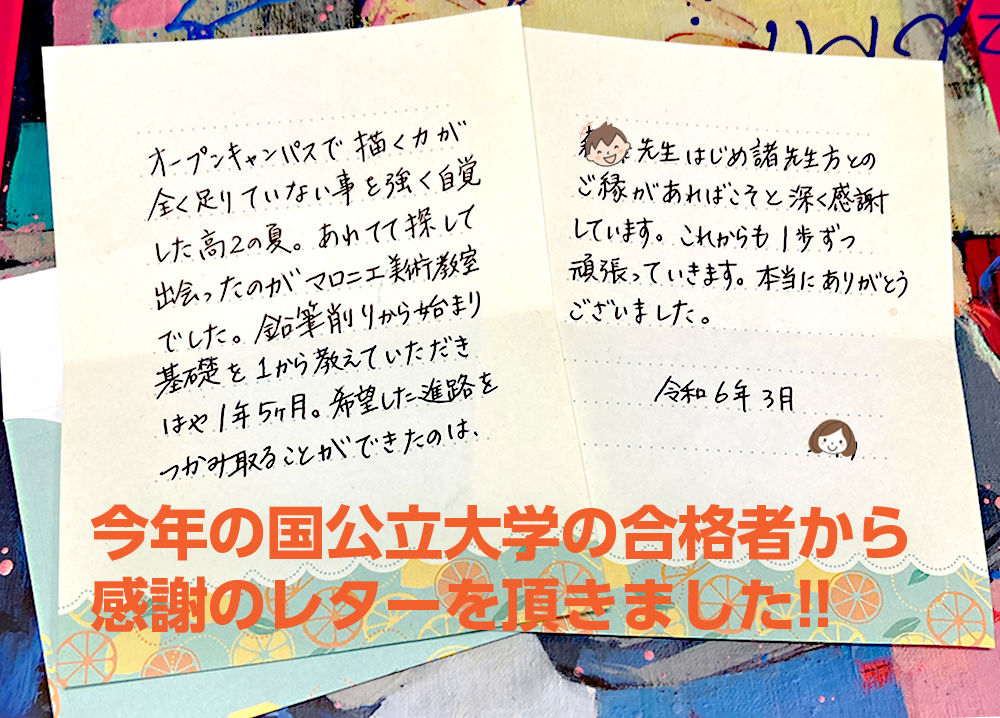 オープンキャンパスで描く力が
全く足りていない事を強く自覚
した高2の夏。あわてて探して
出会ったのがマロニエ美術教室
でした。鉛筆削りから始まり
基礎を1から教えていただき
はや1年5ヶ月。希望した進路を
つかみ取ることができたのは、
先生はじめ諸先生方との
ご縁があればこそと深く感謝
しています。これからも1歩ずつ
頑張っていきます。本当にありがとう
ございました。
令和6年3月
今年の国公立大学の合格者から
感謝のレターを頂きました!!